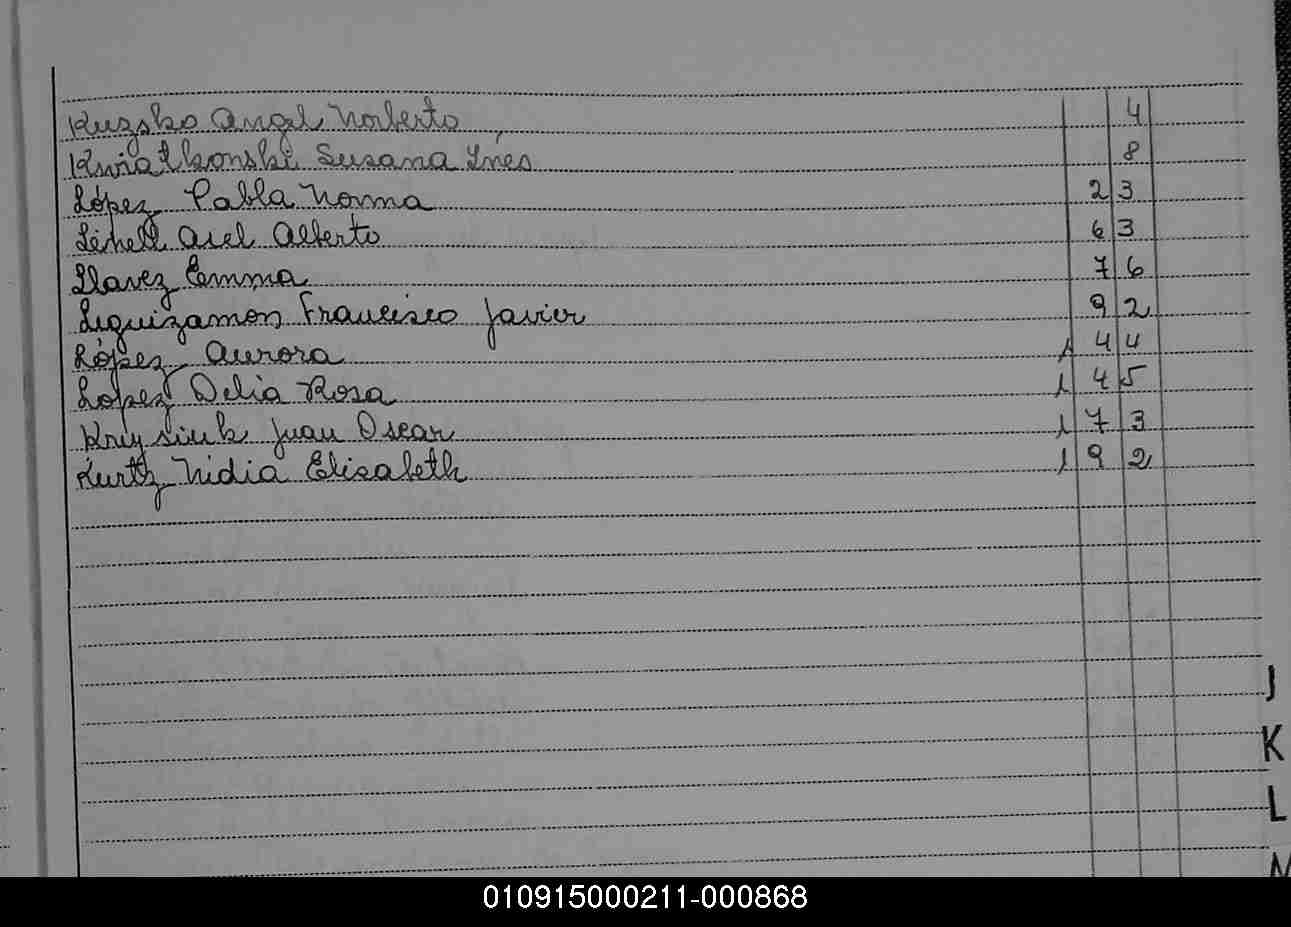 Kuzsko Angel Norberto 4
Kwiatkonski Susana Ínés 8
López Pabla Norma 23
Lénell Ariel Alberto 63
Llavez Emma 76
Leguizamon Francisco Javier 92
López Aurora 1 44
Lopez Delia Rosa 1 45
Juan Oscar 1 73
Kurtz Nidia Elizabeth 1 92
J
K
L
010915000211-000868